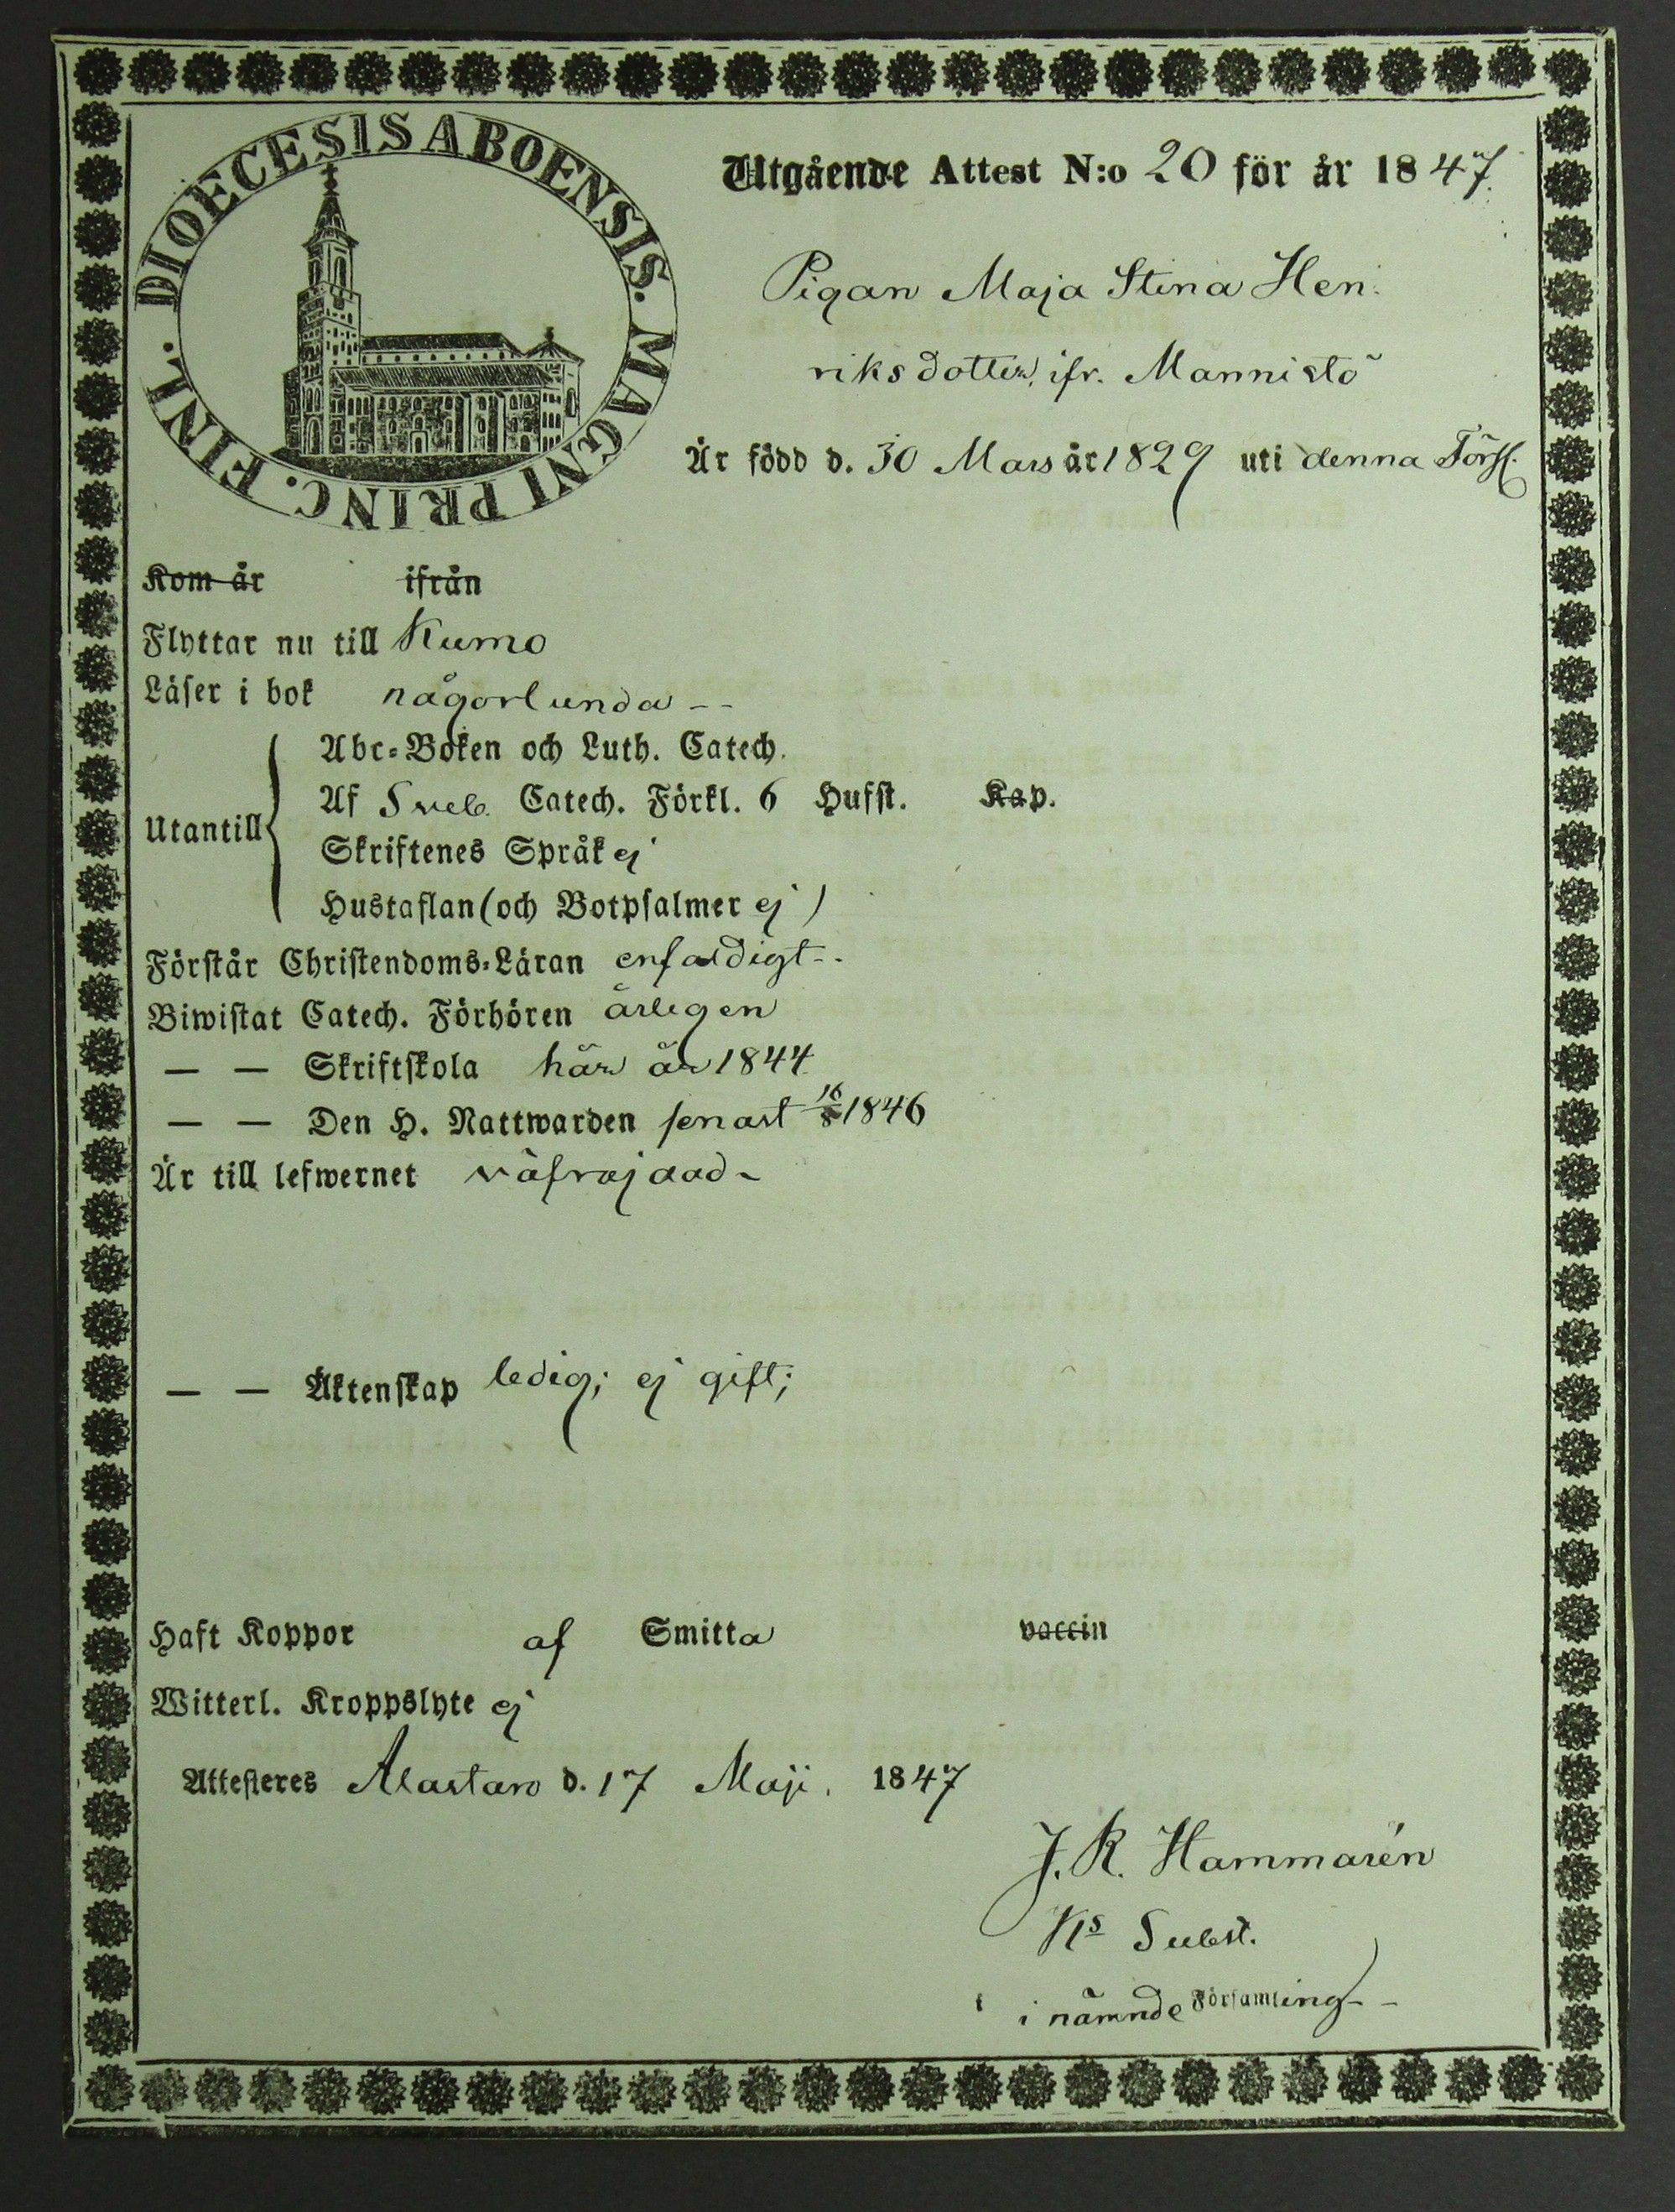 DIOECESIS ABOENSIS. MAGNI PRINC. FINL.
Utgående Attest N:o 20 för år 1847.
Pigan Maja Stina Hen-
riksdotter, ifr. Mannistö
Är född d. 30 Mars år 1829 uti denna Förs.
Kom år ifrån
Flyttar nu till Kumo
Läser i bok någorlunda --
Utantill
Abc-Boken och Luth. Catech.
Af Sveb. Catech. Förkl. 6 Hufst. Kap.
Skriftenes Språk ej
Hustaflan (och Botpsalmer ej)
Förstår Christendoms-Läran enfaldigt --
Biwistat Catech. Förhören årligen
— — Skriftskola här år 1844
— — Den H. Nattwarden senast 16/8 1846
Är till lefwernet
— — Äktenskap ledig; ej gift;
Haft Koppor af Smitta vaccin
Witterl. Kroppslyte ej
Attesteres Alastaro d. 17 Maji. 1847
J. R. Hammarén
Ks Subst.
i nämnde Församling --